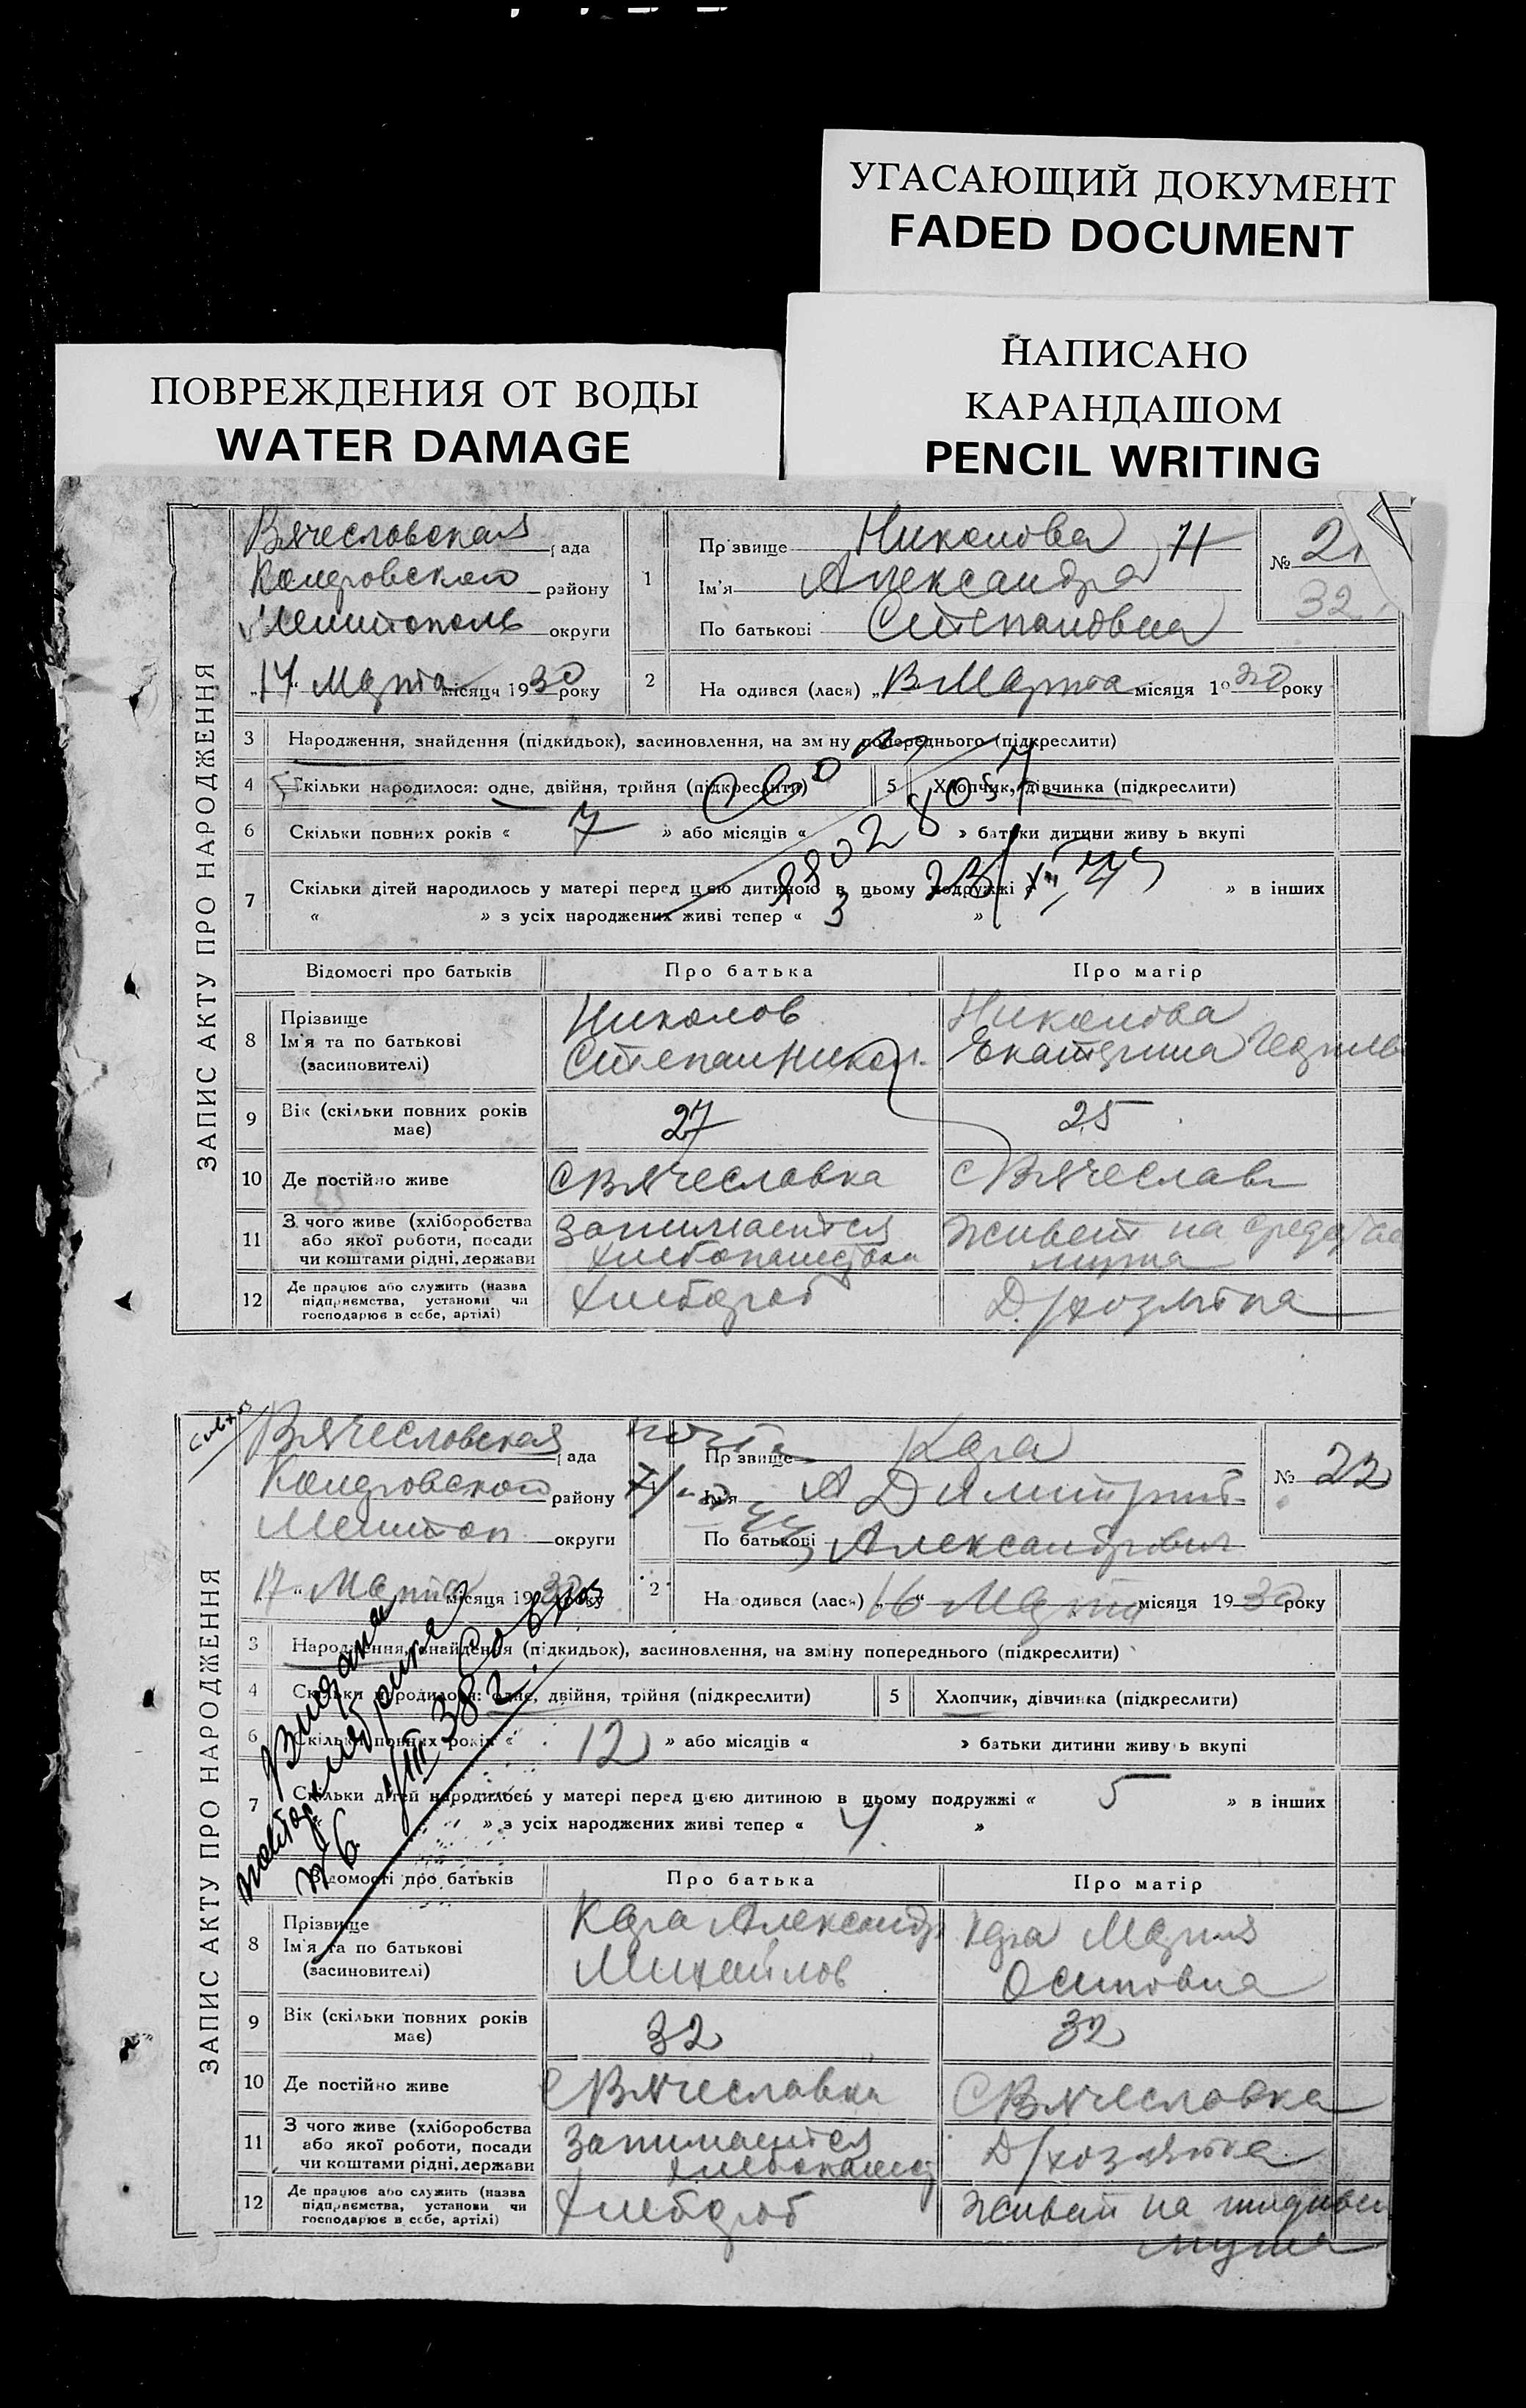 УГАСАЮЩИЙ ДОКУМЕНТ
FADED DOCUMENT
НАПИСАНО
КАРАНДАШОМ
PENCIL WRITING
ПОВРЕЖДЕНИЯ ОТ ВОДЫ
WATER DAMAGE
ЗАПИС АКТУ ПРО НАРОДЖЕННЯ
Вячесловская рада
района району
округи
„17“ Марта місяця 1930 року
1
Прізвище Николова Н
Ім'я Александра
По батькові Степановна
№ 21
32
2 На одився (лася) „ Марта місяця 1930 року
3 Народження, знайдення (підкидьок), засиновлення, на зміну попереднього (підкреслити)
4 Скільки народилося: одне, двійня, трійня (підкреслити)
5 Хлопчик, дівчинка (підкреслити)
6 Скільки повних років « 7 » або місяців « » батьки дитини живуть вкупі
7 Скільки дітей народилось у матері перед цією дитиною в цьому подружжі « » в інших
« » з усіх народжених живі тепер « 3 »
Відомості про батьків Про батька Про матір
8 Прізвище
Ім'я та по батькові
(засиновителі)
Николов
Степан Никол.
Николова
Екатерина
9 Вік (скільки повних років має) 27 25
10 Де постійно живе С Вячесловка С Вячеслав
11 З чого живе (хліборобства
або якої роботи, посади
чи коштами рідні, держави
Занимается
хлебопашеством
Живет на
мужа
12 Де працює або служить (назва
підприємства, установи чи
господарює в себе, артілі)
Хлебороб
Д/хозяйка
ЗАПИС АКТУ ПРО НАРОДЖЕННЯ
Вячесловская рада
району
Мелитоп округи
„17“ Марта місяця 1930 року
Прізвище Кара
Ім'я Димитрий
По батькові Александрович
№ 22
2 На одився (лася) „16“ Марта місяця 1930 року
3 Народження, знайдення (підкидьок), засиновлення, на зміну попереднього (підкреслити)
4 Скільки народилося: одне, двійня, трійня (підкреслити)
5 Хлопчик, дівчинка (підкреслити)
6 Скільки повних років « 12 » або місяців « » батьки дитини живуть вкупі
7 Скільки дітей народилось у матері перед цією дитиною в цьому подружжі « 5 » в інших
» з усіх народжених живі тепер « 4 »
Видана
1/III 38 г.
Відомості про батьків Про батька Про матір
8 Прізвище
Ім'я та по батькові
(засиновителі)
Кара Александр
Михайлов
Кара Мария
Осиповна
9 Вік (скільки повних років має) 32 32
10 Де постійно живе С Вячеславка С Вячесловка
11 З чого живе (хліборобства
або якої роботи, посади
чи коштами рідні, держави
Занимается
хлебопашес
Д/хозяйка
12 Де працює або служить (назва
підприємства, установи чи
господарює в себе, артілі)
Хлебороб
Живет на иждивен
мужа